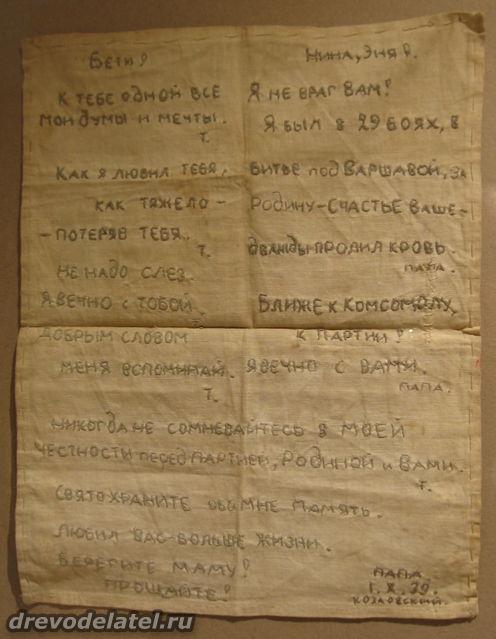 Бетя!
К тебе одной все
мои думы и мечты.
Т.
Как я любил тебя,
как тяжело –
– потеряв тебя.
Т.
Не надо слез.
Я вечно с тобой.
Добрым словом
меня вспоминай.
Т.
Нина, Эля!
Я не враг вам!
Я был в 29 боях, в
битве под Варшавой, за
Родину – счастье ваше –
дважды пролил кровь.
папа.
Ближе к комсомолу,
к партии!
Я вечно с вами.
папа.
Никогда не сомневайтесь в моей
честности перед партией, Родиной и вами.
Т.
Свято храните обо мне память.
Любил вас больше жизни.
Берегите маму!
Прощайте!
папа
1.X.39.
Козловский.
drevodelatel.ru